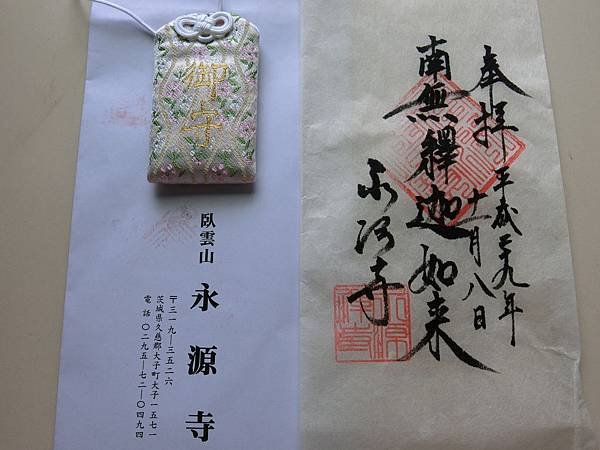 御守
臥雲山
永源寺
〒三一九―三五二六
茨城県久慈郡大子町大子一五七一
電話 〇二九五―七二―〇四九四
奉拝 平成二十九年
十一月八日
南無釋迦如来
永源寺